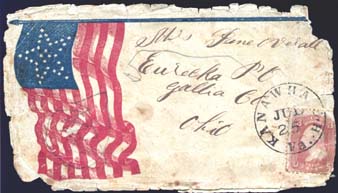 Mrs Jane Overall
Eureka P.O
Gallia Co
Ohio
KANAWHA C.H. Va.
JUL
25